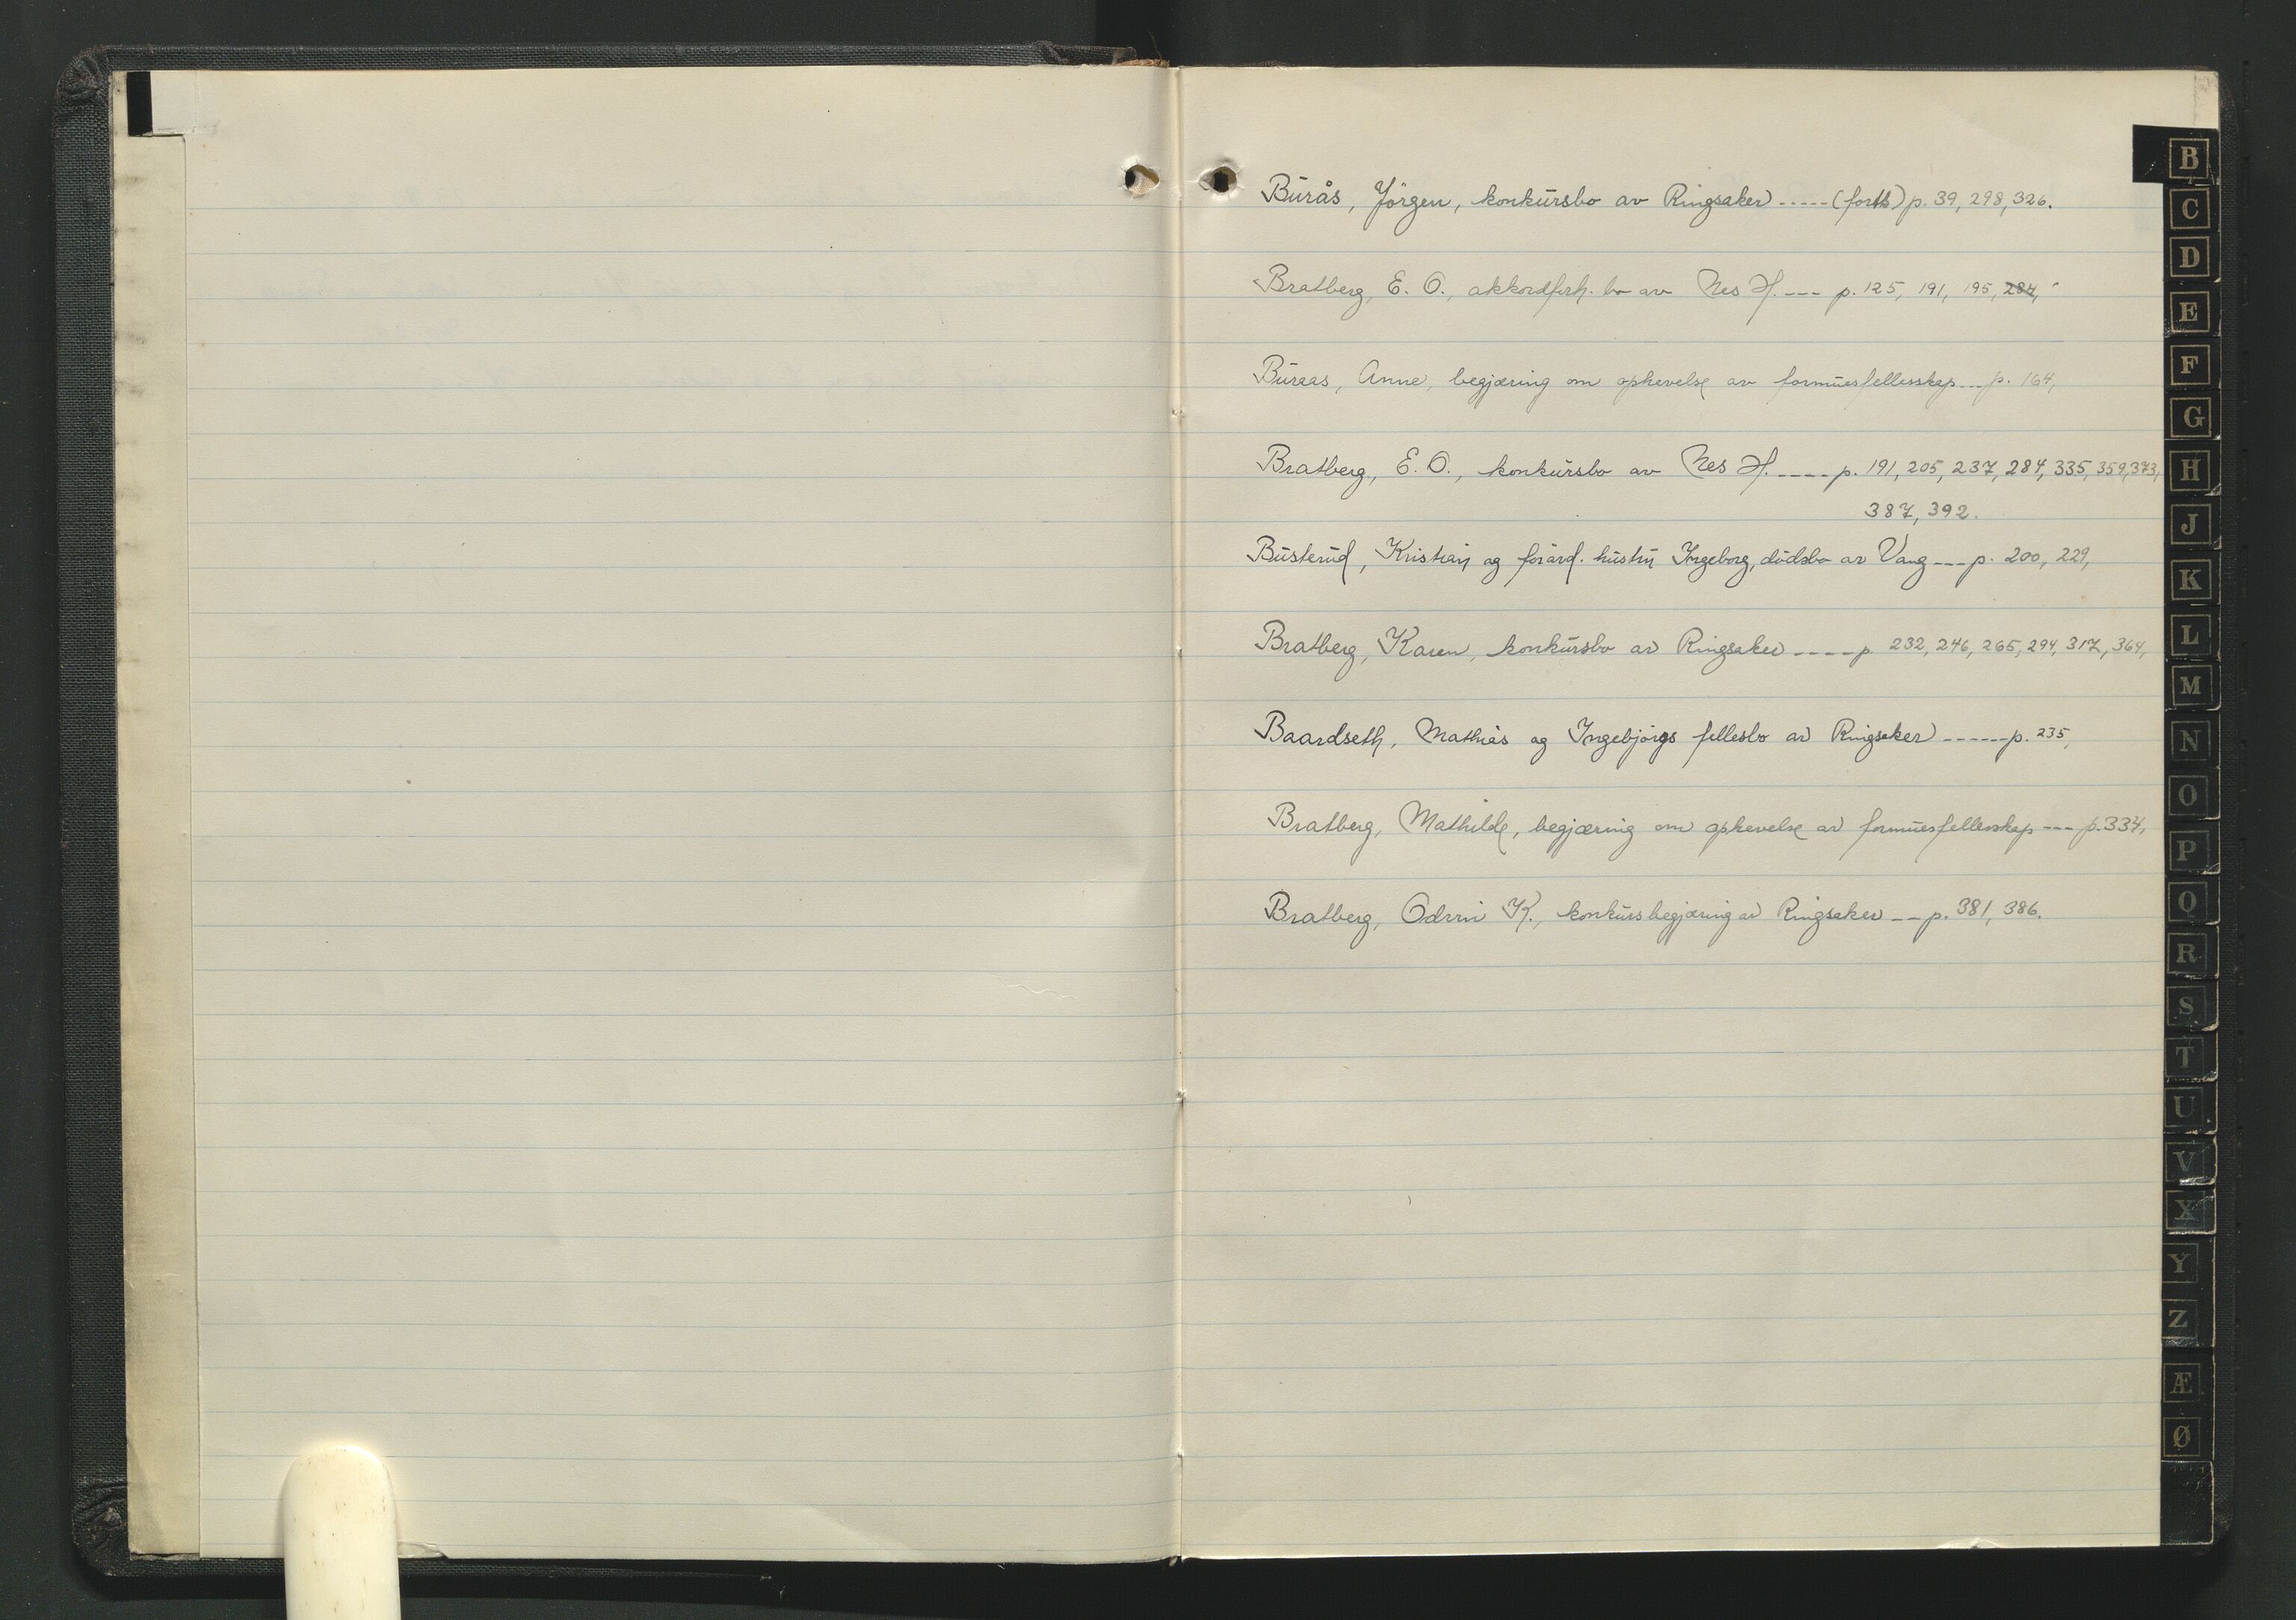 Burås, Jörgen, konkursbo av Ringsaker ----- (forts) p. 39, 298, 326.
Bratberg, E. O., akkordforh. bo av Nes H. --- p. 125, 191, 195, 284,
Buraas, Anne, begjæring om ophevelse av formuesfellesskap --- p. 164,
Bratberg, E. O., konkursbo av Nes H. ---- p. 191, 205, 237, 284, 335, 359, 373,
387, 392.
Busterud, Kristian og forård. hustru Ingeborg, dødsbo av Vang --- p. 200, 229,
Bratberg, Karen, konkursbo av Ringsaker ---- p. 232, 246, 265, 294, 317, 364,
Baardseth, Mathias og Ingebjørgs fellesbo av Ringsaker ------ p. 235,
Bratberg, Mathilde, begjæring om ophevelse av formuesfellesskap --- p. 334,
Bratberg, K., konkursbegjæring av Ringsaker -- p. 381, 386.
B
C
D
E
F
G
H
J
K
L
M
N
O
P
Q
R
S
T
U
V
X
Y
Z
Æ
Ø